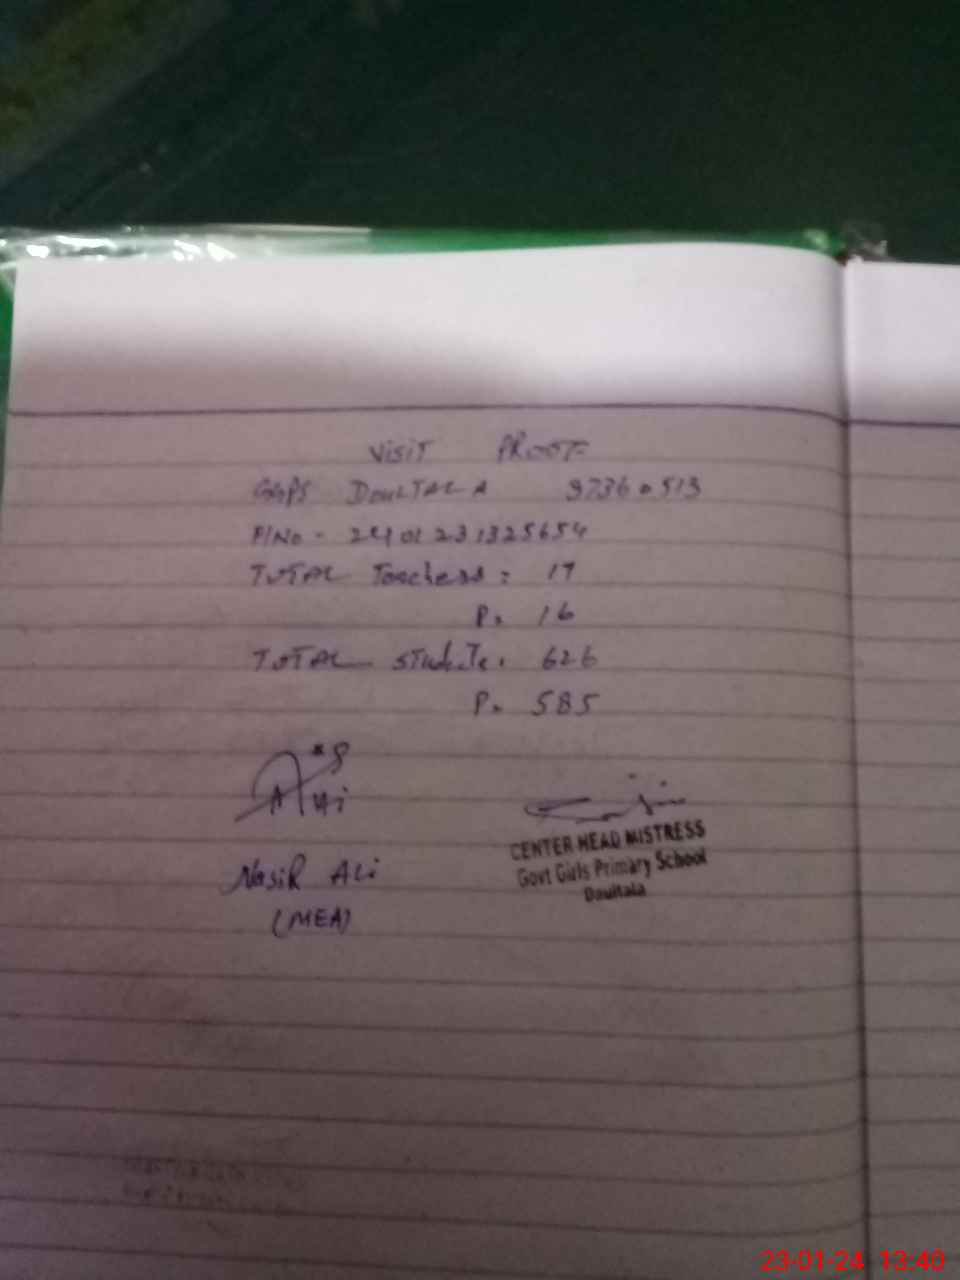 VISIT PROOF
GGPS DOULTALA 37360513
P/No - 2401231325654
TOTAL Teachers: 17
P. 16
TOTAL Students. 626
P. 585
Nasir Ali
(MEA)
CENTER HEAD MISTRESS
Govt Girls Primary School
Daultala
23-01-24 13:40